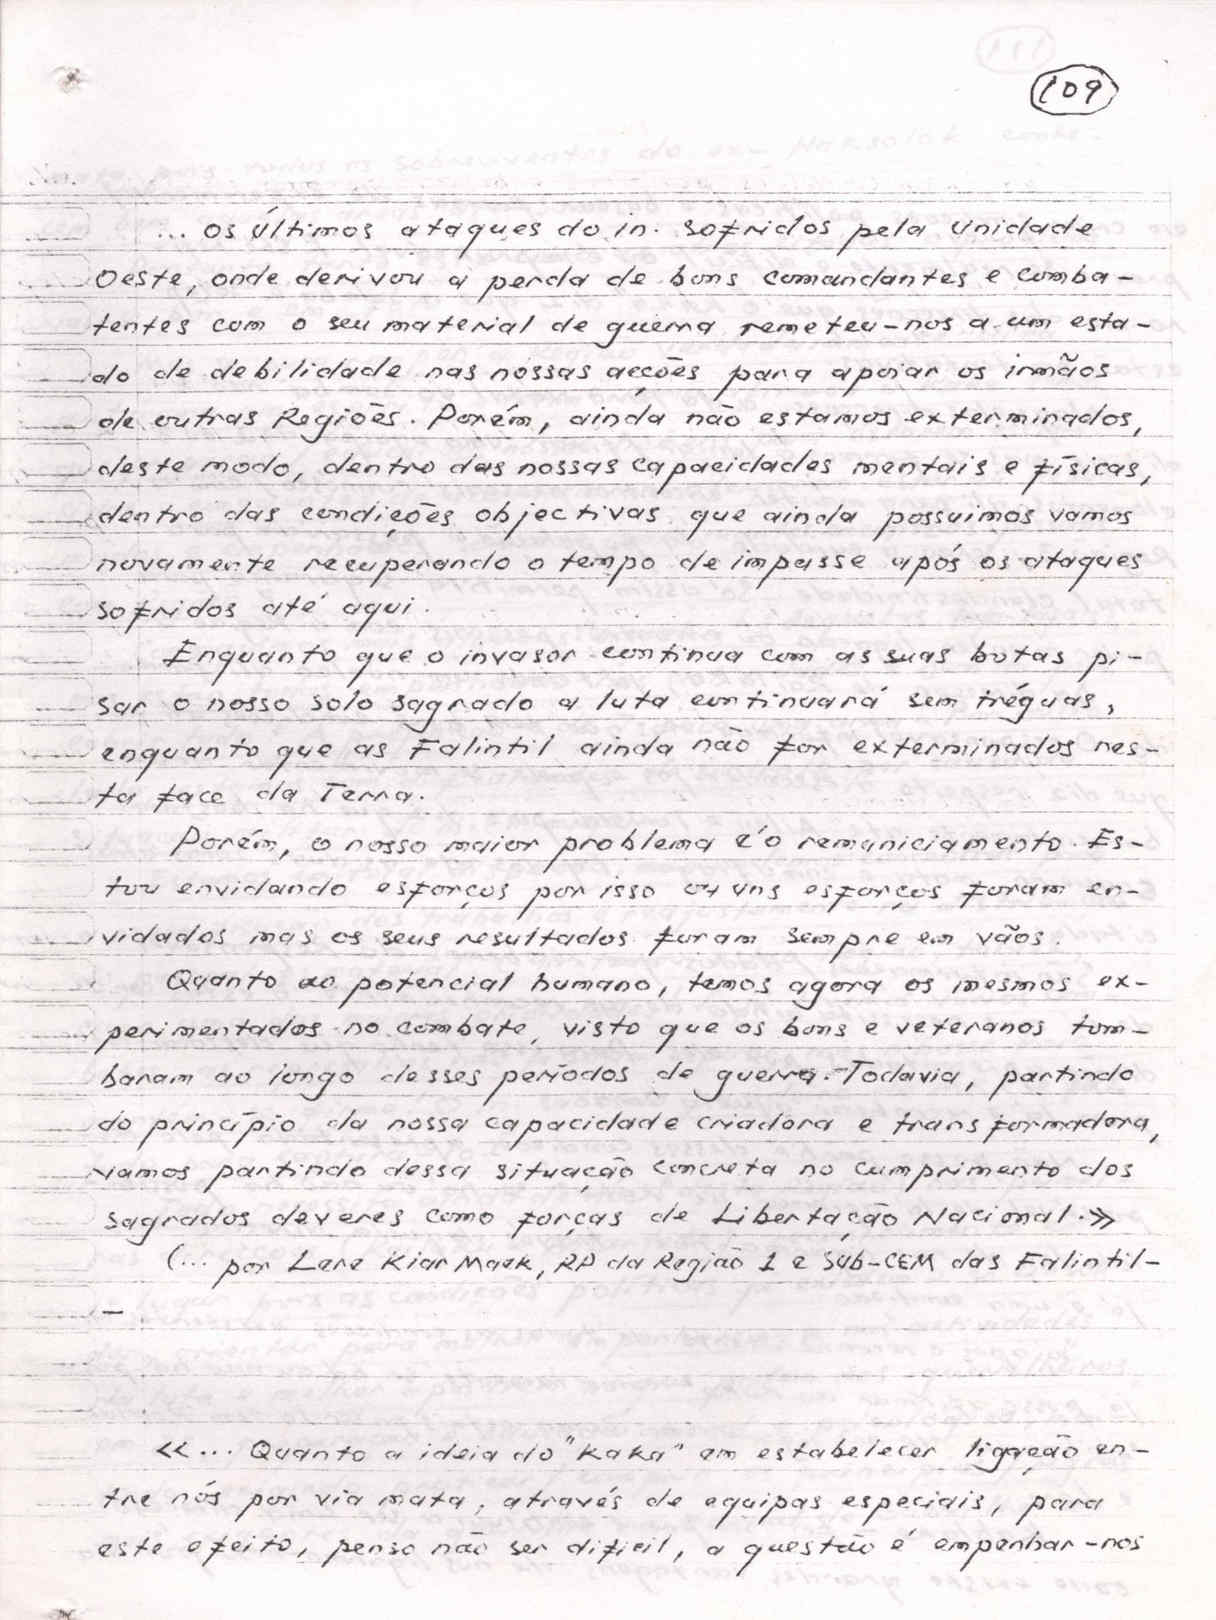 109
... os últimos ataques do in. sofridos pela Unidade
Oeste, onde derivou a perda de bons comandantes e comba-
tentes com o seu material de guerra remeteu-nos a um esta-
do de debilidade nas nossas acções para apoiar os irmãos
de outras Regiões. Porém, ainda não estamos exterminados,
deste modo, dentro das nossas capacidades mentais e físicas,
dentro das condições objectivas que ainda possuimos vamos
novamente recuperando o tempo de impasse após os ataques
sofridos até aqui.
Enquanto que o invasor continua com as suas botas pi-
sar o nosso solo sagrado a luta continuará sem tréguas,
enquanto que as Falintil ainda não for exterminados nes-
ta face da Terra.
Porém, o nosso maior problema é o remuniciamento. Es-
tou envidando esforços por isso e uns esforços foram en-
vidados mas os seus resultados foram sempre em vãos.
Quanto ao potencial humano, temos agora os mesmos ex-
perimentados no combate, visto que os bons e veteranos tom-
baram ao longo desses períodos de guerra. Todavia, partindo
do princípio da nossa capacidade criadora e transformadora,
vamos partindo dessa situação concreta no cumprimento dos
sagrados deveres como forças de Libertação Nacional.»
(... por Lere Kiar Maek, RP da Região 1 e Sub-CEM das Falintil-
-
«... Quanto a ideia do "Kaka" em estabelecer ligação en-
tre nós por via mata, através de equipas especiais, para
este efeito, penso não ser dificil, a questão é empenhar-nos